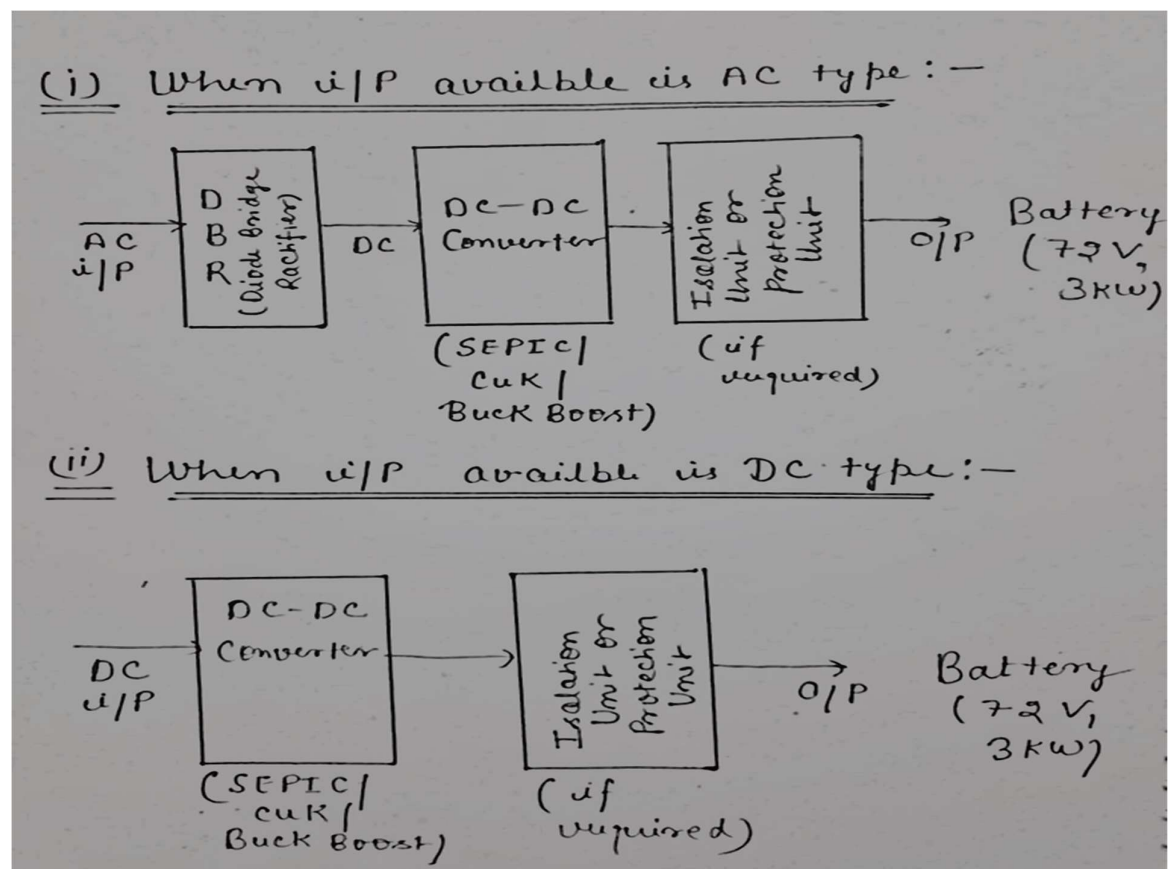 (i) When i/P availble is AC type :-
AC
i/P
D
B
R
(Diode Bridge
Ractifier)
DC
DC-DC
Converter
(SEPIC/
CUK/
Buck Boost)
Isalation
Unit or
Protection
Unit
(if
required)
O/P
Battery
(72 V,
3KW)
(ii) When i/P availble is DC type :-
DC
i/P
DC-DC
Converter
(SEPIC/
CUK/
Buck Boost)
Isalation
Unit or
Protection
Unit
(if
required)
O/P
Battery
(72 V,
3KW)